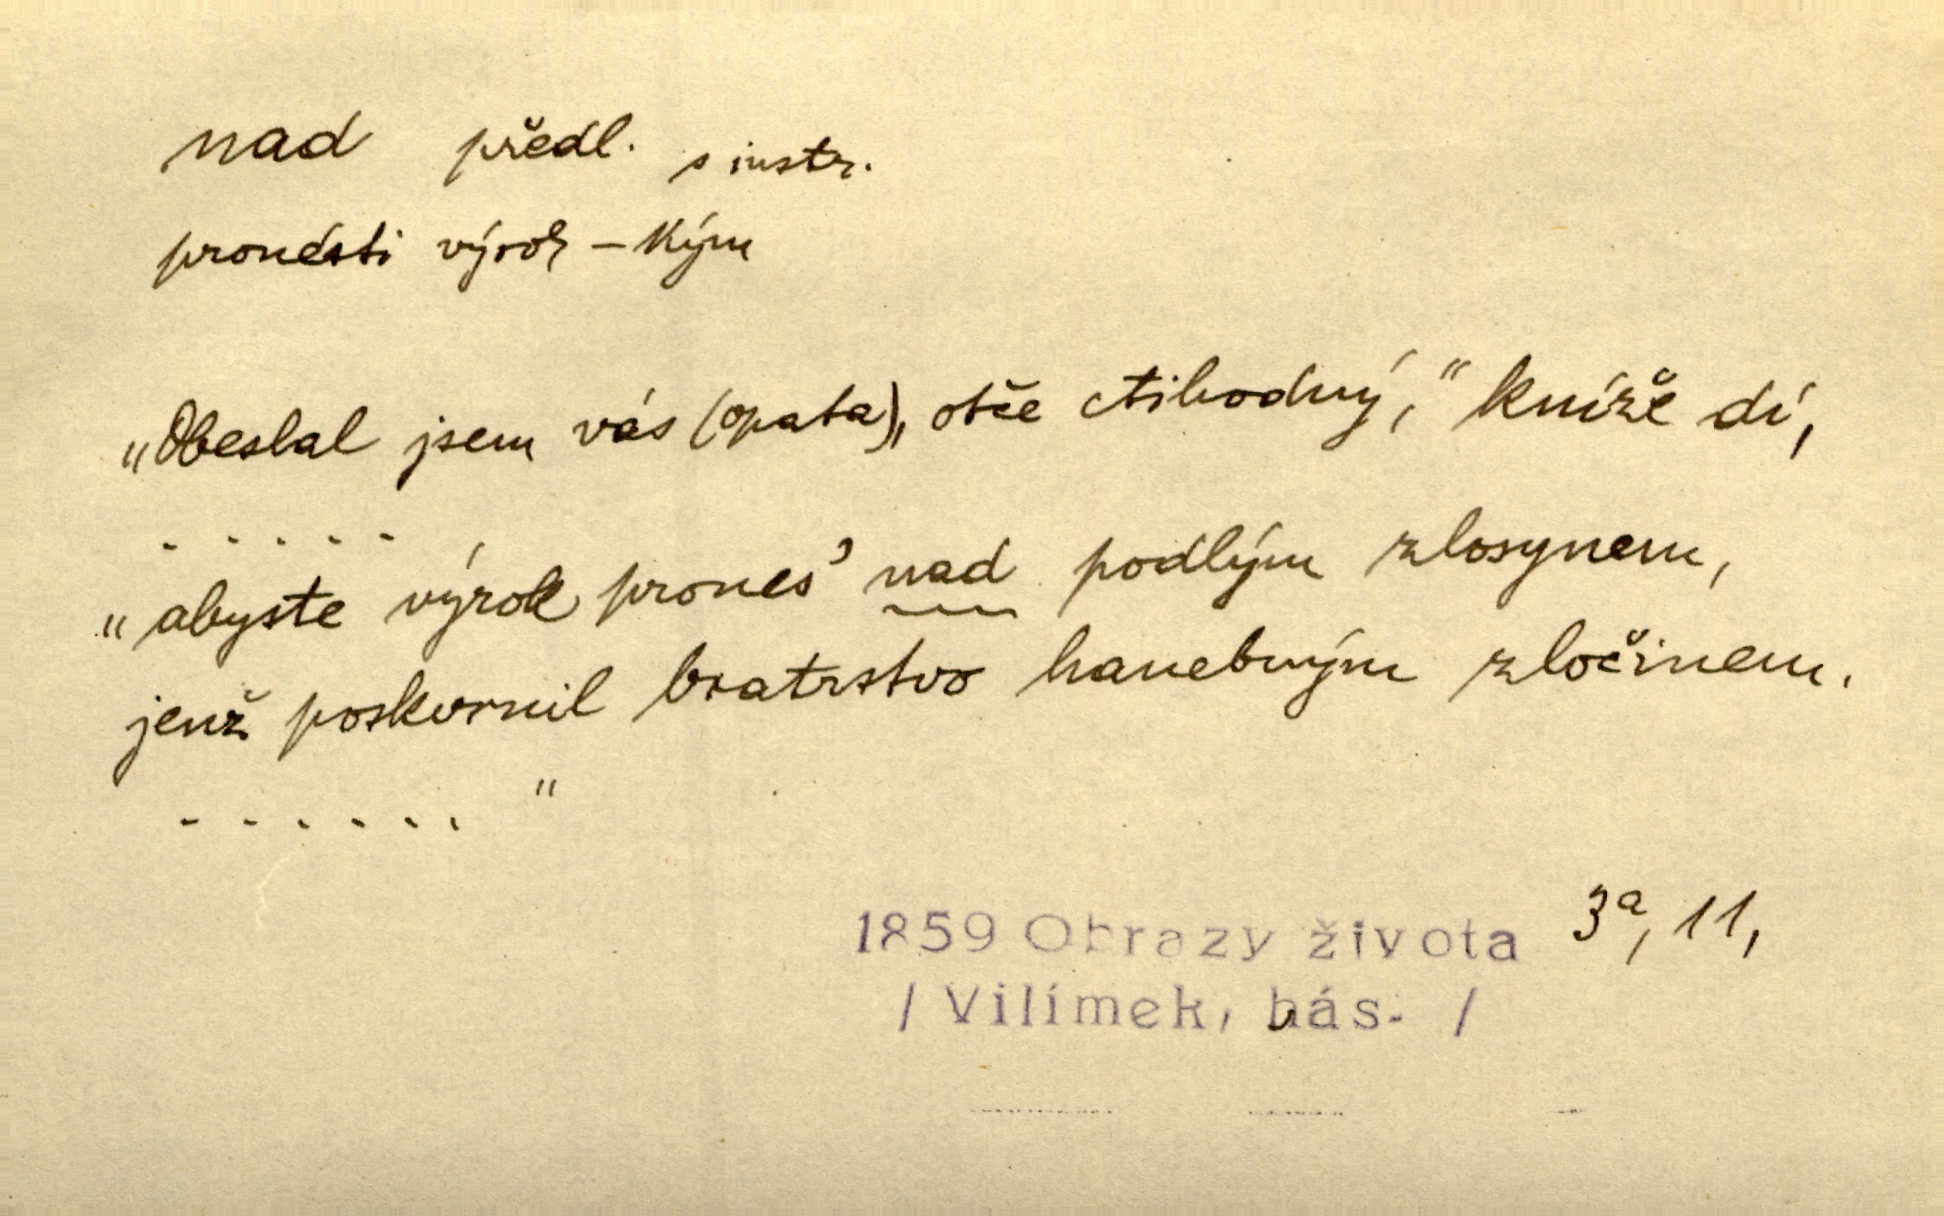 nad předl. s instr.
pronésti výrok – kým
„Obeslal jsem vás (opata), otče ctihodný,“ kníže dí,
. . . . .
„abyste výrok prones’ nad podlým zlosynem,
jenž poskvrnil bratrstvo hanebným zločinem.
. . . . . . “
1859 Obrazy života 3a, 11,
/ Vilímek, bás. /